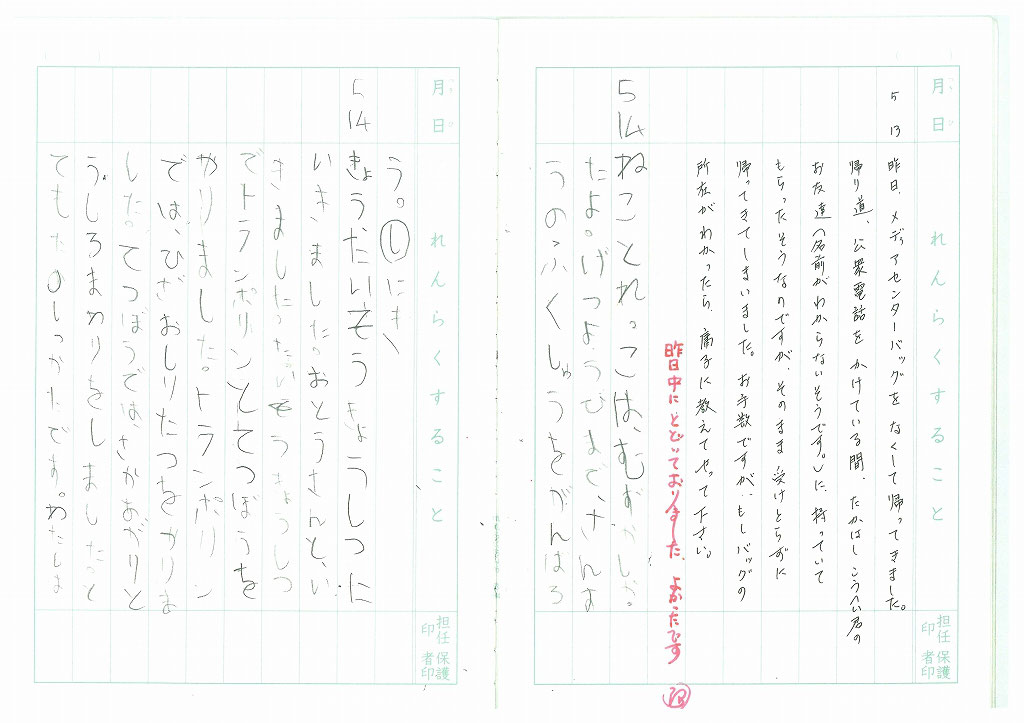 月 日
れんらくすること
担任印
保護者印
5 13
昨日、メディアセンターバッグをなくして帰ってきました。
帰り道、公衆電話をかけている間、たかはしこうへい君の
お友達(名前がわからないそうです。)に、持っていて
もらったそうなのですが、そのまま受けとらずに
帰ってきてしまいました。お手数ですが、もしバッグの
所在がわかったら、庸子に教えてやって下さい。
昨日中にとどいておりました。よかったです
5 14
ねことれっこは、むずかしか
たよ。げつようびまで、さんす
うのふくしゅうをがんばろ
月 日
れんらくすること
担任印
保護者印
う。しにき
5 14
きょうたいそうきょうしつに
いきました。おとうさんと、い
きました。たいそうきょうしつ
でトランポリンとてつぼうを
やりました。トランポリン
では、ひざおしりたつをやりま
した。てつぼうではさかあがりと
うしろまわりをしました。と
てもたのしかたです。わたしは